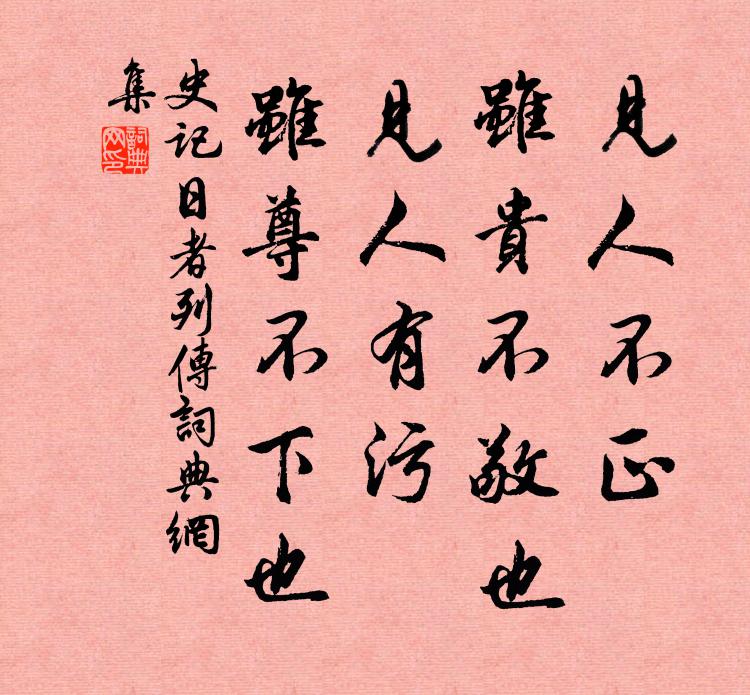 見人不正
雖貴不敬也
見人有污
雖尊不下也
史記日者列傳詞典網
集
詞典
网印